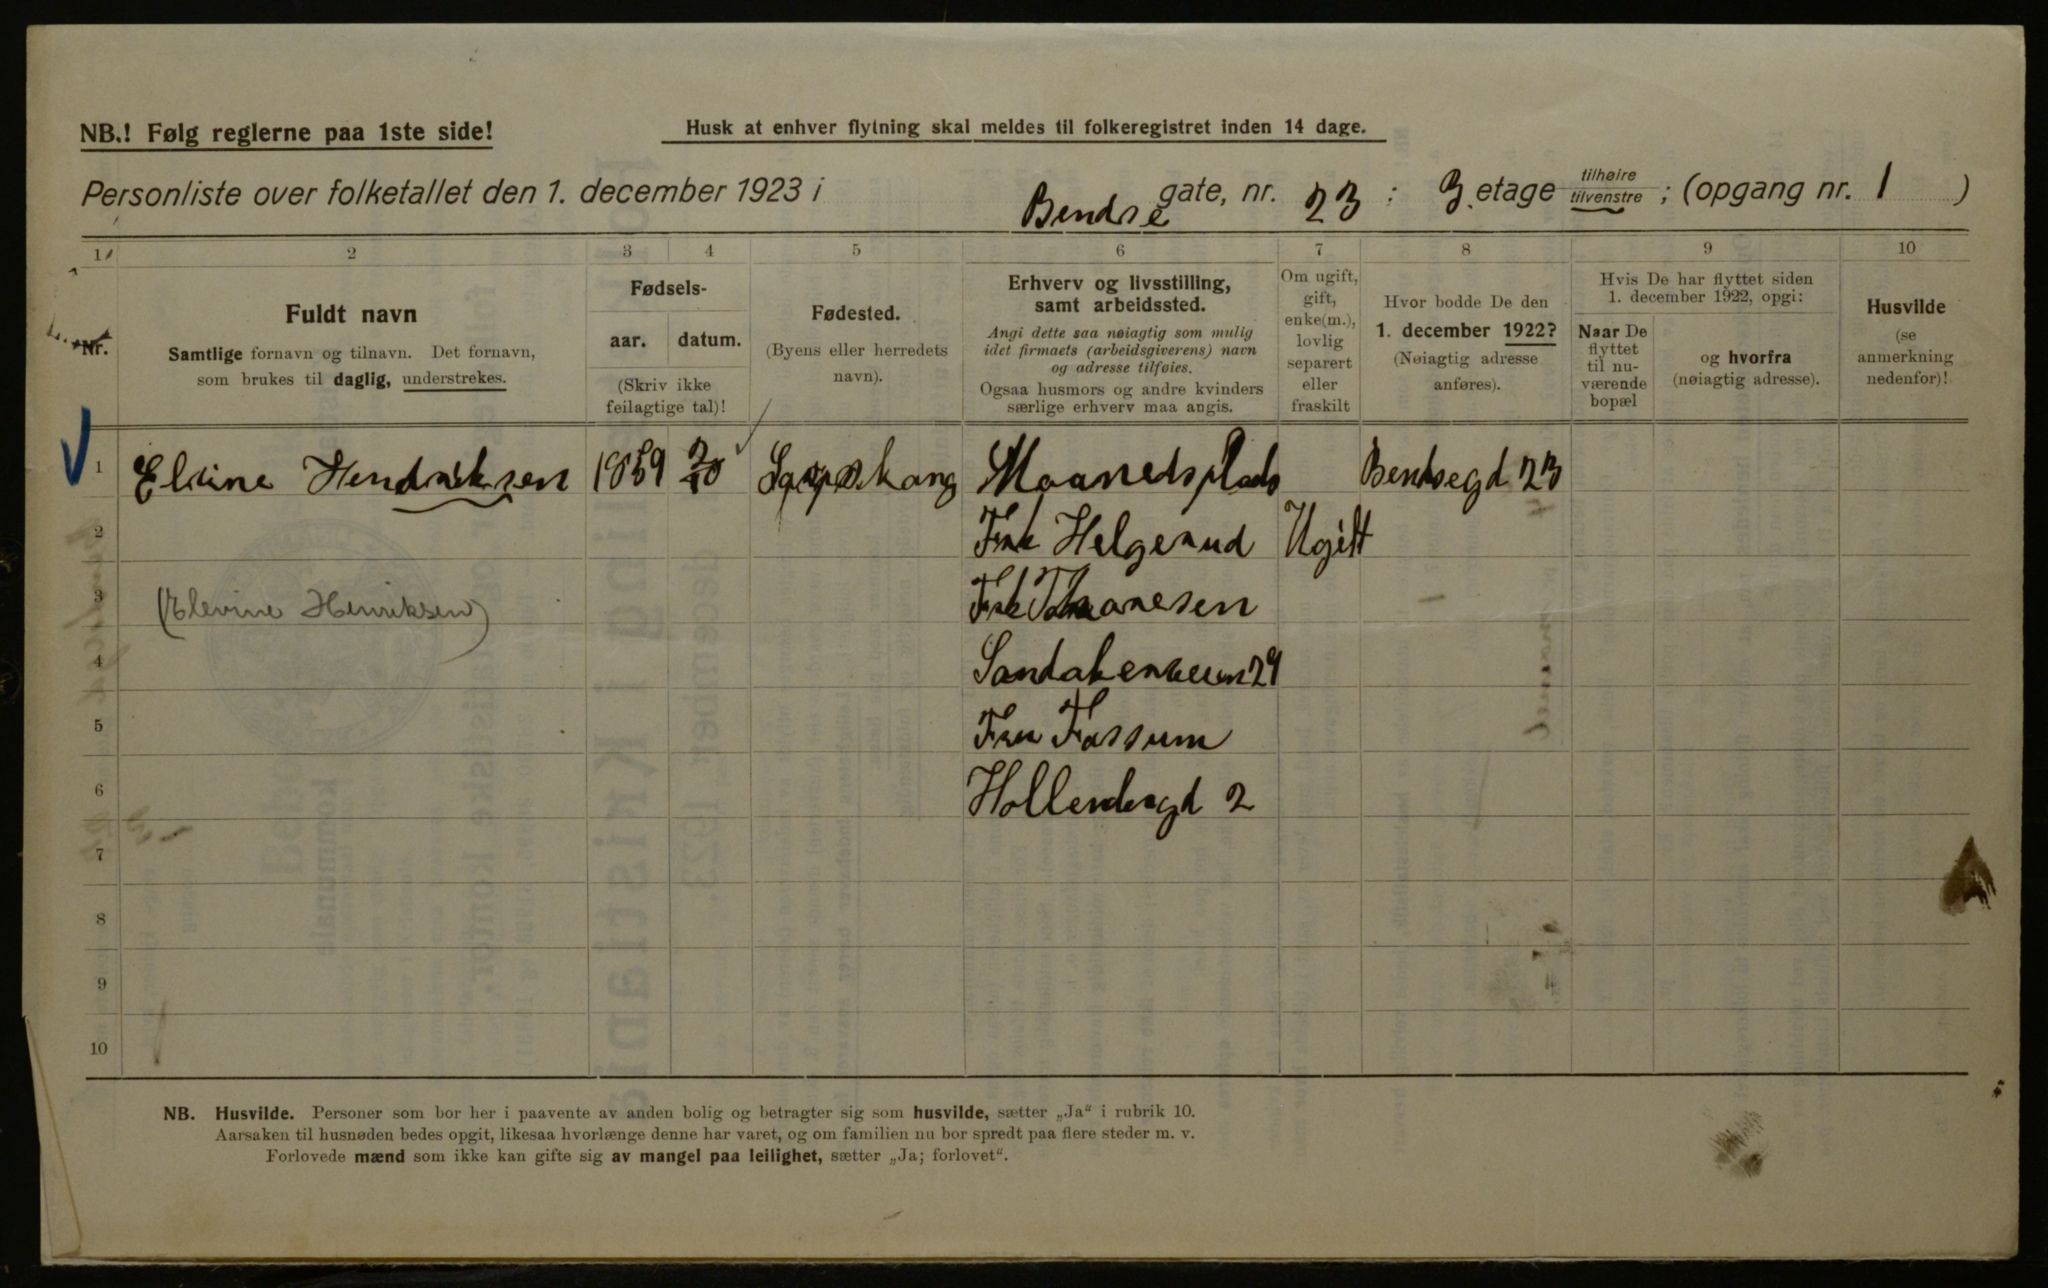 NB.! Følg reglerne paa 1ste side!
Husk at enhver flytning skal meldes til folkeregistret inden 14 dage.
Personliste over folketallet den 1. december 1923 i Bendse gate, nr. 23 : 3. etage tilhøire tilvenstre ; (opgang nr. 1 )
1 2 3 4 5 6 7 8 9 10
Nr.
Fuldt navn
Samtlige fornavn og tilnavn. Det fornavn,
som brukes til daglig, understrekes.
Fødsels-
aar. datum.
(Skriv ikke
feilagtige tal)!
Fødested.
(Byens eller herredets
navn).
Erhverv og livsstilling,
samt arbeidssted.
Angi dette saa nøiagtig som mulig
idet firmaets (arbeidsgiverens) navn
og adresse tilføies.
Ogsaa husmors og andre kvinders
særlige erhverv maa angis.
Om ugift,
gift,
enke(m.),
lovlig
separert
eller
fraskilt
Hvor bodde De den
1. december 1922?
(Nøiagtig adresse
anføres).
Hvis De har flyttet siden
1. december 1922, opgi:
Naar De
flyttet
til nu-
værende
bopæl
og hvorfra
(nøiagtig adresse).
Husvilde
(se
anmerkning
nedenfor)!
1 Elvine Hendriksen 1859 Maanedsplads Bendsegd 23
2 Helgerud Ugift
3 (Elevine Henriksen)
4 Sandakerveien 29
5 Fru Fossum
6 Hollendergd 2
7
8
9
10
NB. Husvilde. Personer som bor her i paavente av anden bolig og betragter sig som husvilde, sætter „Ja“ i rubrik 10.
Aarsaken til husnøden bedes opgit, likesaa hvorlænge denne har varet, og om familien nu bor spredt paa flere steder m. v.
Forlovede mænd som ikke kan gifte sig av mangel paa leilighet, sætter „Ja; forlovet“.